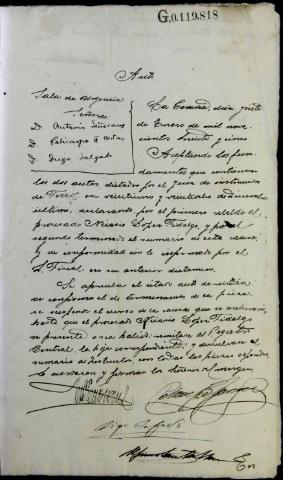 G.0.119.818
Auto
Sala de Urgencia
Señores
D. Antonio
D. Policarpo F. Costas
D. Diego Salgado
La Coruña, diez y siete
de Enero de mil nove-
cientos treinta y cinco
Aceptando los fun-
damentos que contienen
los dos autos dictados por el Juez de instrucción
de Ferrol, en veintiuno y veintidos de Diciembre
último, declarando por el primero rebelde al
procesado Nicasio Lopez Fidalgo, y por el
segundo terminado el sumario de esta causa;
y de conformidad con lo informado por el
S. Fiscal en su anterior dictamen.
Se aprueba el citado auto de rebeldia
se confirma el de terminacion de la pieza,
se suspende el curso de la causa que se archivara,
hasta que el procesado Nicasio Lopez Fidalgo
se presente o sea habido; remitase al Registro
Central la hoja correspondiente, y devuelvase el
sumario al Instructor con todas las piezas
Lo acordaron y firman los Señores del margen
Diego Salgado
En